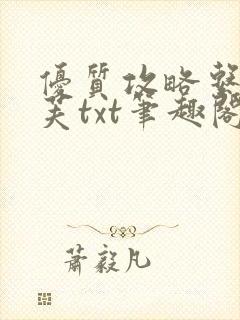 優質攻略整
芙txt筆趣閣
蕭毅凡